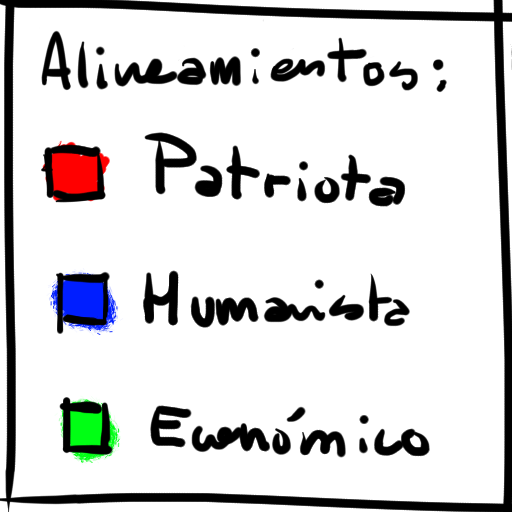 Alineamientos:
Patriota
Humanista
Económico